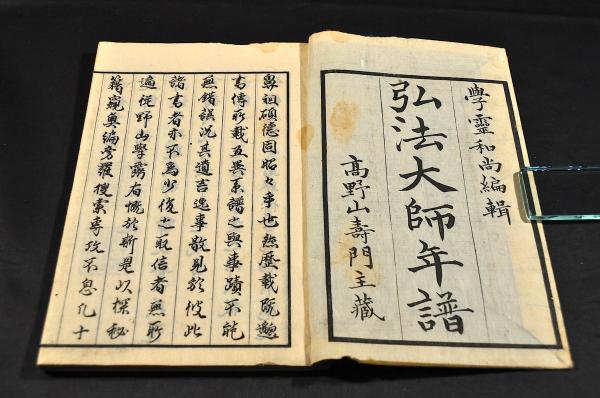 學靈和尚編輯
弘法大師年譜
髙野山壽門主藏
鼻祖碩德固昭々乎也然歷載既邈
書傳所載互異系譜之與事蹟不能
無錯誤況其遺言逸事散見於彼此
諸書者亦不為少後之取信者無所
適從野山學霛有慨於斯是以探秘
籍窺奧編旁羅搜索專攻不息凡十